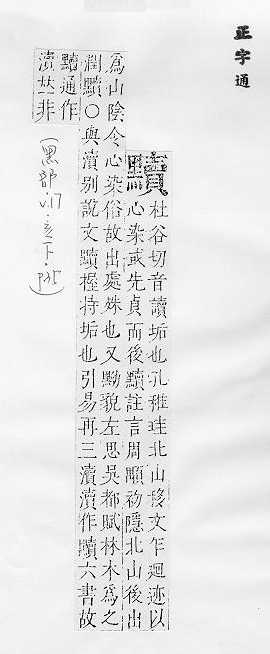 正字通
黷
杜谷切音讀垢也孔稚珪北山移文乍迴迹以
心染或先貞而後黷註言周顒初隱北山後出
爲山陰令心染俗故出處殊也又黝貌左思吳都賦林木爲之
潤黷○與瀆别說文黷握持垢也引易再三瀆瀆作黷六書故
黷通作
瀆非
(黑部. v.17. 亥下. p35)